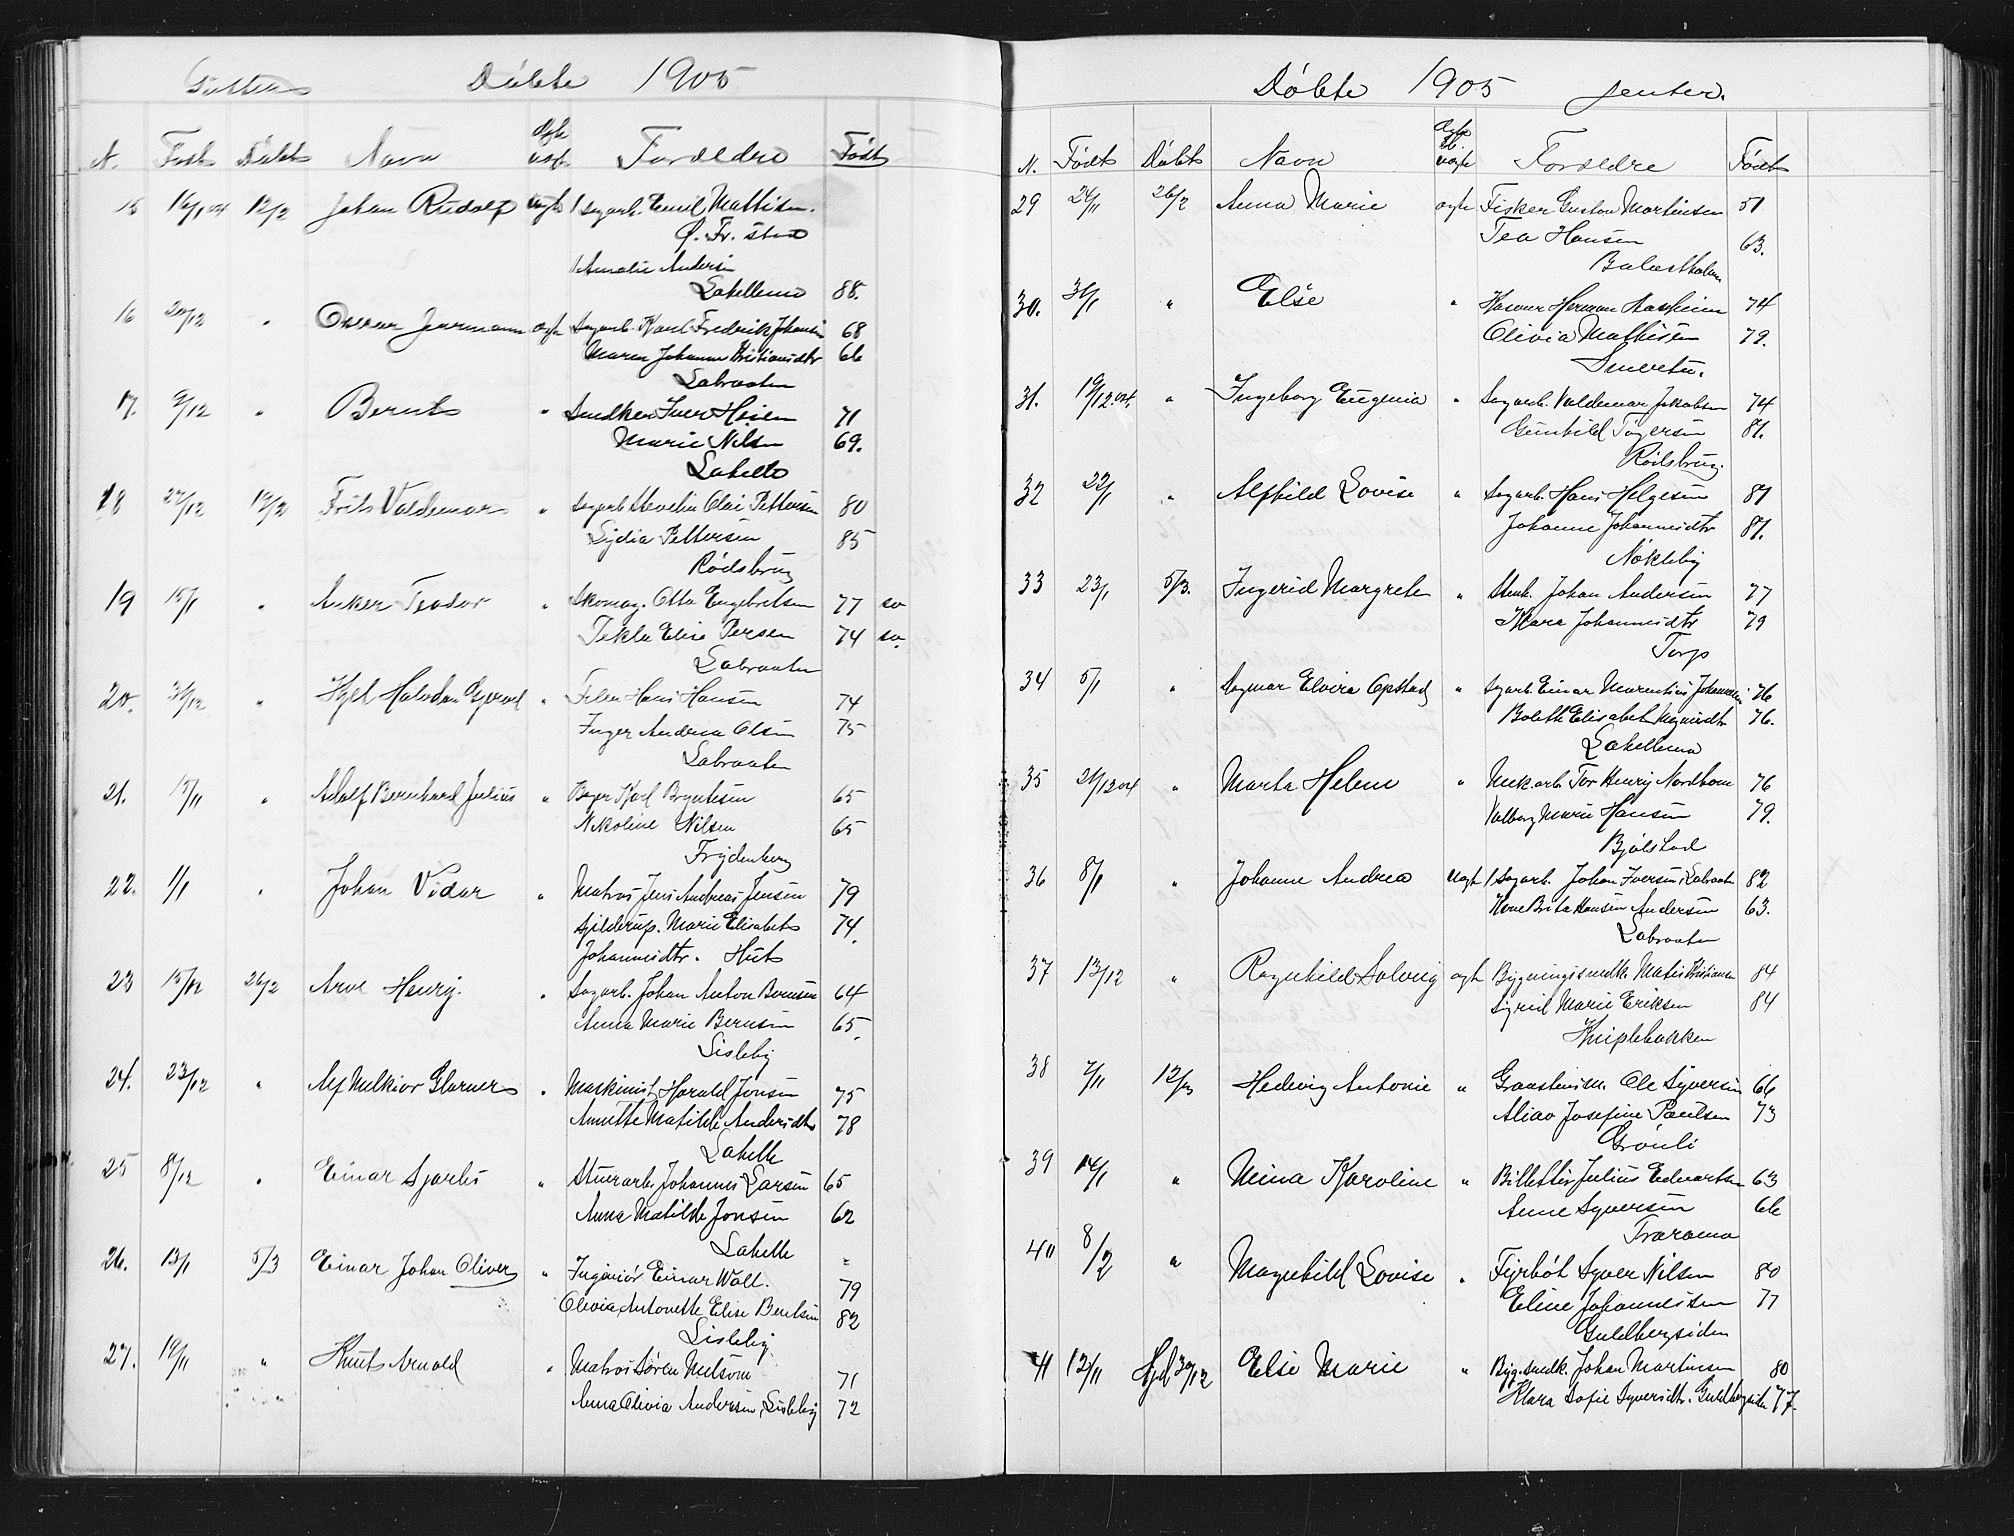 Gutter Døbte 1905
N. Født Døbt Navn Ægte uægt Forældre Født
15 12/2 Johan Rudolf uægt Sagarb. Emil Mathisen.
Ø. Fr. sten
Amalie Andersen
Lahellemo 88.
16 20/12 " Oscar Jearmann ægte Sagarb. Karl Fredrik Johansen 68
Maren Johanne Kristiansdtr 66
Labraaten
17. 9/12 " Bernt " Snedker Iver Heien 71
Marie Nilsen 69.
Lahelle
18 27/12 12/2 Frits Valdemar " Sagarb. Olai Pettersen 80
Lydia Pettersen 85
Rødsbrug
19 15/1 " Anker Teodor " Skomag. Otto Engebretsen 77 sv
Tekla Elise Persen 74 sv.
Labraaten
20. 31/12 " Kjel Halvdan " Hans Hansen 74
Inger Andrea Olsen 75
Labraaten
21. 15/11 " Adolf Bernhard Julius " Karl Bryntesen 65
Nikoline Nilsen 65
Frydenberg
22. 1/1 " Johan Vidar " Matros Jens Andreas Jensen 79
Gjilderup. Marie Elisabet 74.
Johannesdtr. Hut
23 15/12 26/2 Arve Henry. " Sagarb. Johan Anton Bernsen 64
Anna Marie Bernsen 65.
Lisleby
24. 23/12 " Alf Melkior Glarner " Maskinist Harald Jonsen 75
Annette Matilde Andersdtr 78
Lahelle
25 8/12 " Einar Hjartes " Stuerarb. Johannes Larsen 65
Anna Matilde Jonsen 62
Lahelle
26. 13/1 5/3 Einar Johan Oliver " Ingeniør Einar Wall. 79
Olivia Antonette Elise Bentsen 82
Lisleby
27. 19/11 " Knut Arnold " Matros Søren Melsom 71
Anna Olivia Andersen, Lisleby 72
Døbte 1905 Jenter.
N. Født Døbt Navn Ægte el. uægte Forældre Født
29 24/11 26/2 Anna Marie ægte Fisker Gustav Martinsen 51
Tea Hansen 63.
Balastholmen
30. 31/1 " Else " Herman 74
Olivia Mathisen 79.
Smertu.
31. 19/12.04. " Ingeborg Eugenia " Sagarb. Valdemar Jakobsen 74
Gunhild Tygersen 81.
Rødsbrug.
32 22/1 " Alfhild Lovise " Sagarb. Hans Helgesen 81
Johanne Johannesdtr 81.
Nøkleby
33 23/1 5/3. Ingerid Margrete " Stenh. Johan Andersen 77
Klara Johannesdtr 79
Torp
34 5/1 " Dagmar Elvira Opstad " Sagarb. Einar Marentius Johannesen 76
Bolette Elisabet Magnusdtr 76.
Lahellemo
35 21/12 04 " Marta Helene " Mek.arb. Tor Henry Nordbom 76
Valborg Marie Hansen 79.
Bjølstad
36 8/1 " Johanne Andrea uægt Sagarb. Johan Iversen, Labraaten 82
Kone Brita Hansen Andersen 63.
Labraaten
37 13/12 " Ragnhild Solveig ægte Bygningssnedk. Matis Kristiansen 84
Sigrid Marie Eriksen 84
Kniplebakken
38 7/11 12/3 Hedevig Antonie " Graastensm. Ole Syversen 66
Josefine Paulsen 73
Grønli
39 14/1 " Mina Karoline " Billettør Julius Edvartsen 63
Anne Syversen 66
Traraona
40 8/2 " Magnhild Lovise " Fyrbøt Syver Nilsen 80
Eline Johannesen 77
Guldbergsiden
41 12/11 Hjd 30/12 Else Marie " Byg.snedk. Johan Martinsen 80
Klara Sofie Syversdtr. Guldbergsiden 77.